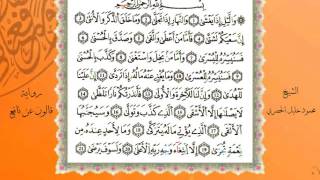 بِسْمِ اللَّهِ الرَّحْمَٰنِ الرَّحِيمِ
وَالَّيْلِ إِذَا يَغْشَىٰ وَالنَّهَارِ إِذَا تَجَلَّىٰ وَمَا خَلَقَ الذَّكَرَ وَالْأُنثَىٰ
إِنَّ سَعْيَكُمْ لَشَتَّىٰ فَأَمَّا مَنْ أَعْطَىٰ وَاتَّقَىٰ وَصَدَّقَ بِالْحُسْنَىٰ
فَسَنُيَسِّرُهُ لِلْيُسْرَىٰ وَأَمَّا مَنْ بَخِلَ وَاسْتَغْنَىٰ وَكَذَّبَ بِالْحُسْنَىٰ
فَسَنُيَسِّرُهُ لِلْعُسْرَىٰ وَمَا يُغْنِي عَنْهُ مَالُهُ إِذَا تَرَدَّىٰ إِنَّ عَلَيْنَا
لَلْهُدَىٰ وَإِنَّ لَنَا لَلْآخِرَةَ وَالْأُولَىٰ فَأَنذَرْتُكُمْ نَارًا تَلَظَّىٰ
لَا يَصْلَاهَا إِلَّا الْأَشْقَى الَّذِي كَذَّبَ وَتَوَلَّىٰ وَسَيُجَنَّبُهَا
الْأَتْقَى الَّذِي يُؤْتِي مَالَهُ يَتَزَكَّىٰ وَمَا لِأَحَدٍ عِندَهُ مِن
نِّعْمَةٍ تُجْزَىٰ إِلَّا ابْتِغَاءَ وَجْهِ رَبِّهِ الْأَعْلَىٰ وَلَسَوْفَ يَرْضَىٰ
الشيخ
محمود خليل الحصري
رواية
قالون عن نافع